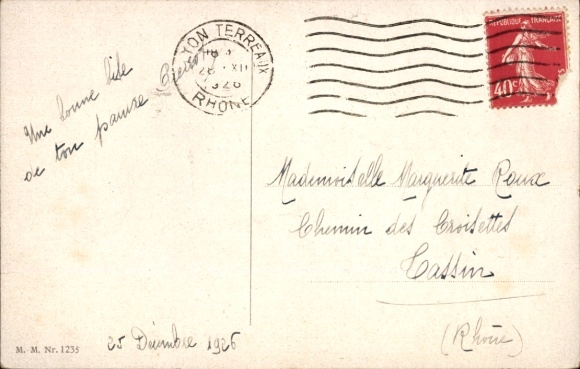 LYON TERREAUX
XII
1926
RHÔNE
REPUBLIQUE FRANÇAISE
40c
Une bonne bise
de ton pauvre
Mademoiselle Marguerite Roux
Chemin des Croisettes
Tassin
(Rhône)
25 Décembre 1926
M. M. Nr. 1235